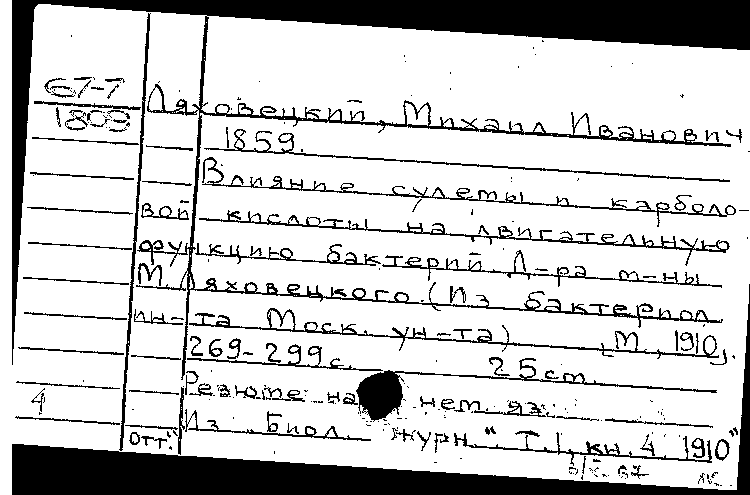 67-7
1809
Ляховецкий, Михаил Иванович
1859.
Влияние сулемы и карболо-
вой кислоты на двигательную
функцию бактерий. Д-ра м-ны
М. Ляховецкого. (Из бактериол.
ин-та Моск. ун-та) [М., 1910].
269-299 с. 25 см.
Резюме на нем. яз.
4
Отт. Из "Биол. журн.". Т. I, кн. 4, 1910"